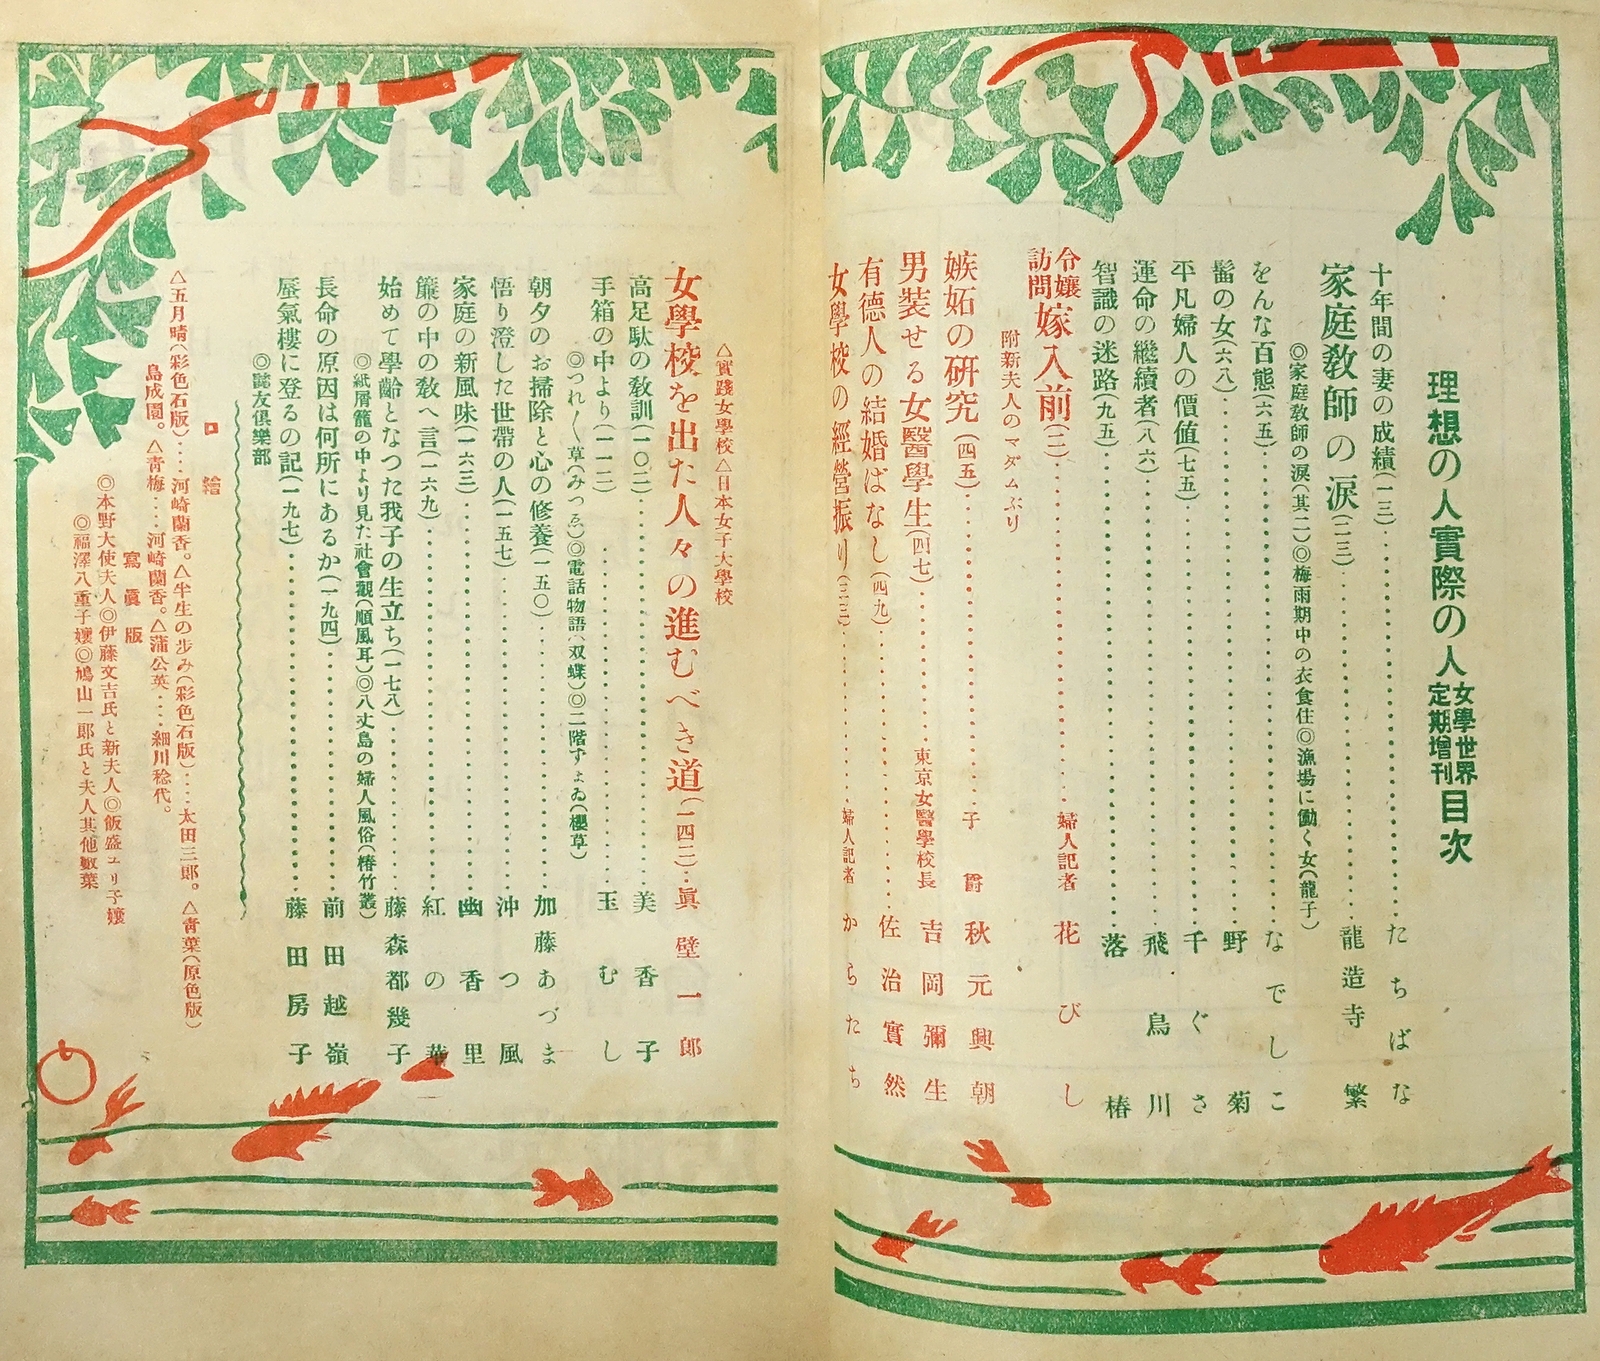 理想の人實際の人 女學世界定期增刊 目次
十年間の妻の成績(一三)・・・たちばな
家庭敎師の淚(二三)・・・龍造寺繁
◎家庭敎師の淚(其二)◎梅雨期中の衣食住◎漁場に働く女(龍子)
をんな百態(六五)・・・なでしこ
髷の女(六八)・・・野菊
平凡婦人の價値(七五)・・・千ぐさ
運命の繼續者(八六)・・・飛鳥川
智識の迷路(九五)・・・落椿
令孃訪問 嫁入前(二)・・・婦人記者 花びし
附新夫人のマダムぶり
嫉妬の硏究(四五)・・・子爵 秋元興朝
男裝せる女醫學生(四七)・・・東京女醫學校長 吉岡彌生
有德人の結婚ばなし(四九)・・・佐治實然
女學校の經營振り(三三)・・・婦人記者 からたち
△實踐女學校△日本女子大學校
女學校を出た人々の進むべき道(一四二)・・眞壁一郎
高足駄の敎訓(一〇二)・・・美香子
手箱の中より(一一二)・・・玉むし
◎つれ〴〵草(みつゑ)◎電話物語(双蝶)◎二階ずまゐ(櫻草)
朝夕のお掃除と心の修養(一五〇)・・・加藤あづま
悟り澄した世帶の人(一五七)・・・沖つ風
家庭の新風味(一六三)・・・幽香里
簾の中の敎へ言(一六九)・・・紅の華
始めて學齡となつた我子の生立ち(一七八)・・・藤森都幾子
◎紙屑籠の中より見た社會觀(順風耳)◎八丈島の婦人風俗(椿竹叢)
長命の原因は何所にあるか(一九四)・・・前田越嶺
蜃氣樓に登るの記(一九七)・・・藤田房子
◎誌友俱樂部
口繪
△五月晴(彩色石版)・・・河崎蘭香。△半生の步み(彩色石版)・・・太田三郎。△靑葉(原色版)
島成園。△靑梅・・・河崎蘭香。△蒲公英・・・細川稔代。
寫眞版
◎本野大使夫人◎伊藤文吉氏と新夫人◎飯盛ユリ子孃
◎福澤八重子孃◎鳩山一郎氏と夫人其他數葉